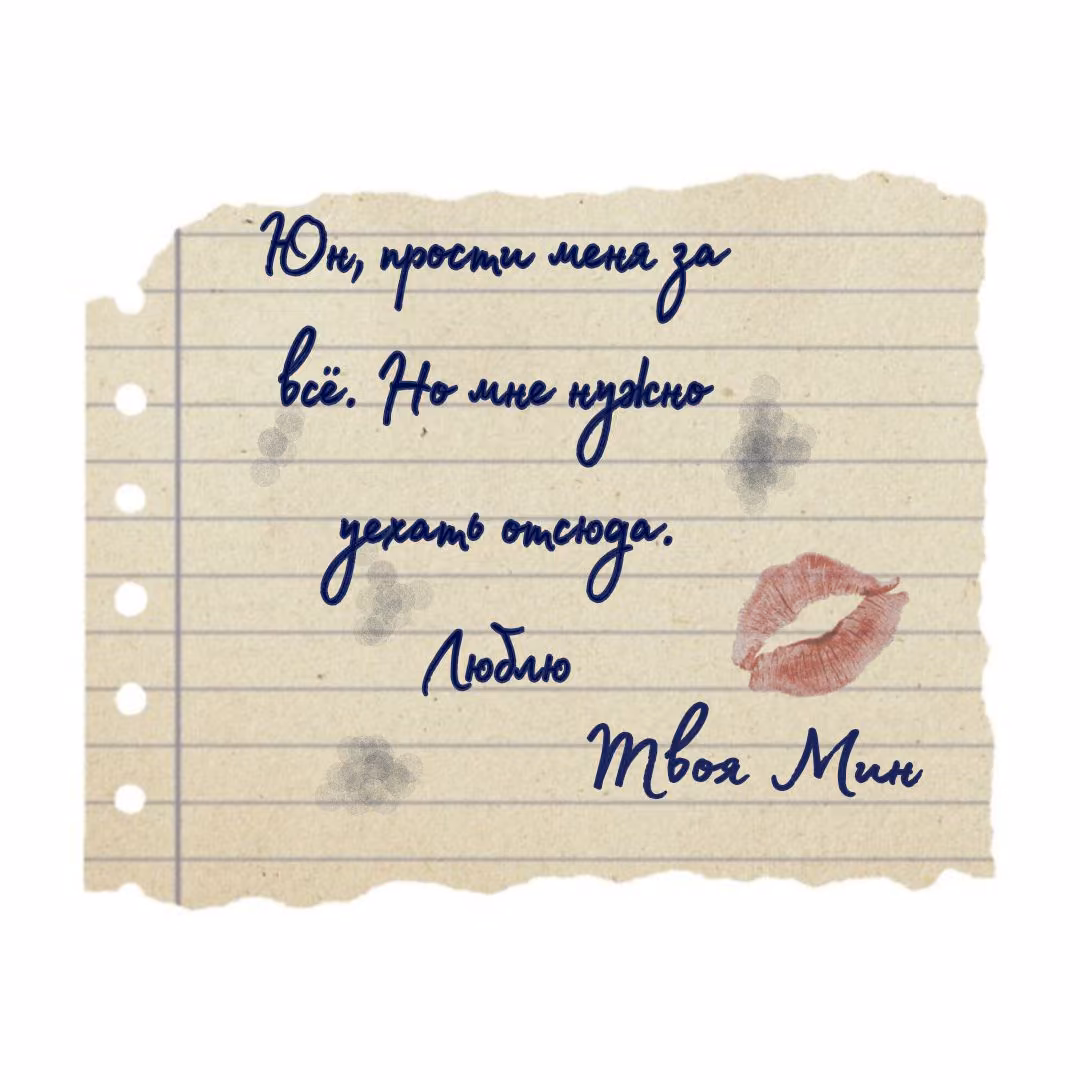 Юн, прости меня за
всё. Но мне нужно
уехать отсюда.
Люблю
Твоя Мин